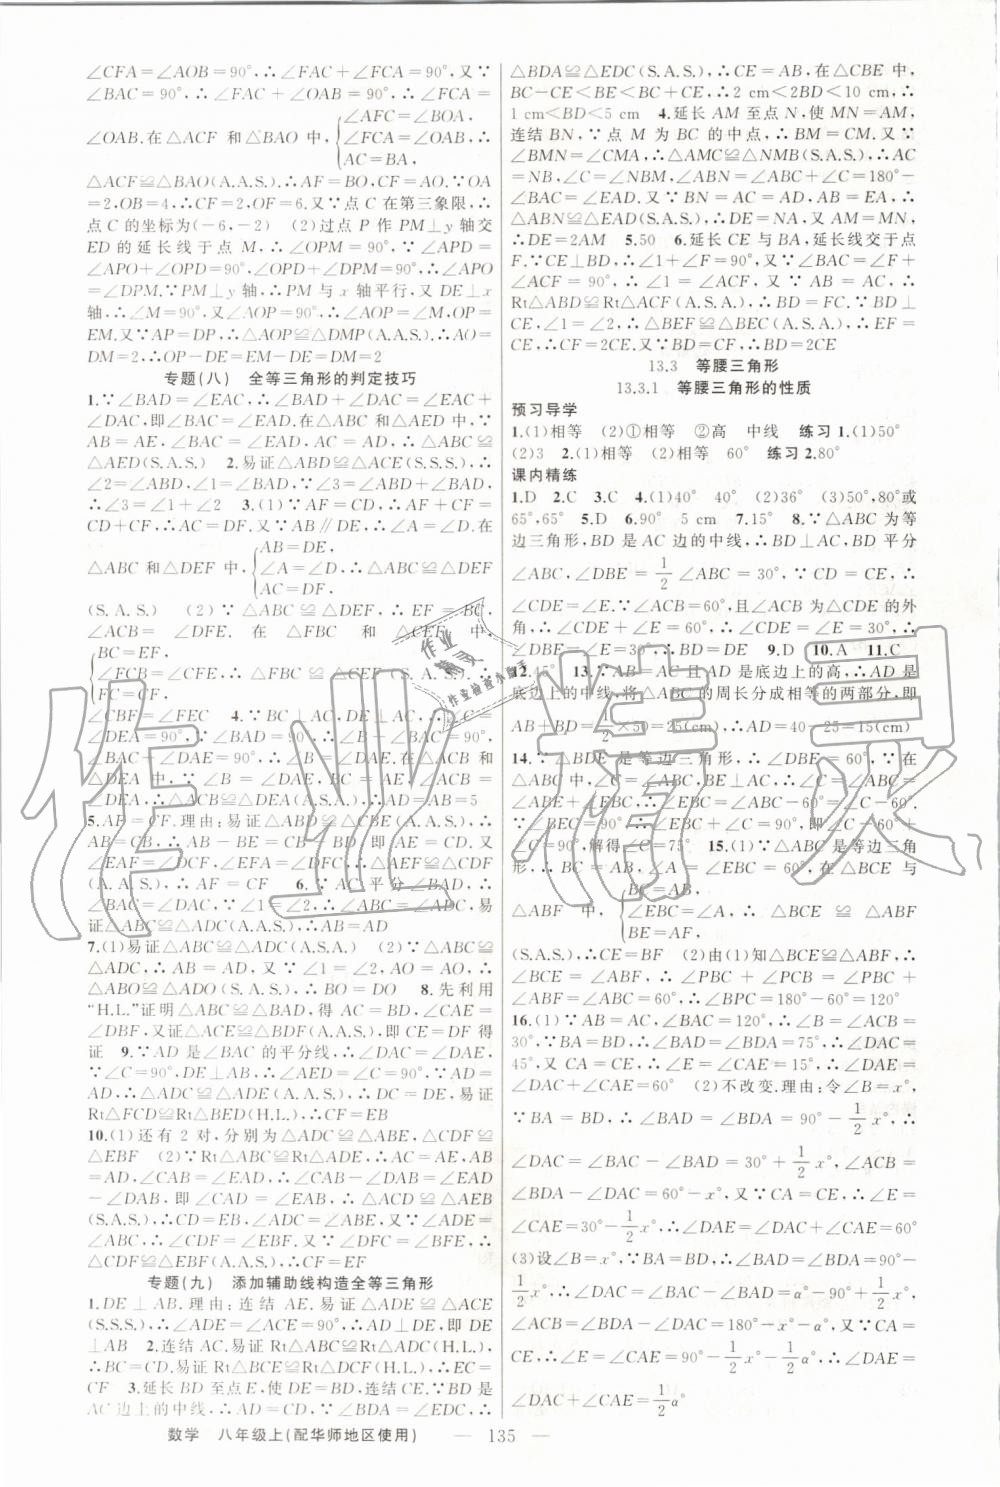 ∠CFA=∠AOB=90°,∴∠FAC+∠FCA=90°,又∵
∠BAC=90°,∴∠FAC+∠OAB=90°,∴∠FCA=
∠OAB.在△ACF 和△BAO 中,{∠AFC=∠BOA,
∠FCA=∠OAB,∴
AC=BA,
△ACF≌△BAO(A.A.S.).∴AF=BO,CF=AO.∵OA
=2,OB=4,∴CF=2,OF=6.又∵点 C 在第三象限,∴
点 C 的坐标为(-6,-2) (2)过点 P 作 PM⊥y 轴交
ED 的延长线于点 M,∴∠OPM=90°,∵∠APD=
∠APO+∠OPD=90°,∠OPD+∠DPM=90°,∴∠APO
=∠DPM.∵PM⊥y 轴,∴PM 与 x 轴平行,又 DE⊥x
轴,∴∠M=90°,又∠AOP=90°,∴∠AOP=∠M,OP=
EM.又∵AP=DP,∴△AOP≌△DMP(A.A.S.).∴AO=
DM=2,∴OP-DE=EM-DE=DM=2
专题(八) 全等三角形的判定技巧
1.∵∠BAD=∠EAC,∴∠BAD+∠DAC=∠EAC+
∠DAC,即∠BAC=∠EAD.在△ABC 和△AED 中,∵
AB=AE,∠BAC=∠EAD,AC=AD,∴△ABC≌
△AED(S.A.S.) 2.易证△ABD≌△ACE(S.S.S.),∴
∠2=∠ABD,∠1=∠BAD,∵∠3=∠ABD+∠BAD,
∴∠3=∠1+∠2 3.(1)∵AF=CD,∴AF+CF=
CD+CF,∴AC=DF.又∵AB∥DE,∴∠A=∠D.在
△ABC 和△DEF 中,{AB=DE,
∠A=∠D,∴△ABC≌△DEF
AC=DF.
(S.A.S.) (2)∵△ABC≌△DEF,∴EF=BC,
∠ACB=∠DFE.在△FBC 和△CEF 中,
{BC=EF,
∠FCB=∠CFE,∴△FBC≌△CEF(S.A.S.),∴
∠CBF=∠FEC 4.∵BC⊥AC,DE⊥AB,∴∠C=
∠DEA=90°,∴∠B+∠BAC=90°,∵∠BAC+∠DAE
=90°,∴∠B=∠DAE.在△ABC 和
△DEA 中,∵∠B=∠DAE,BC=AE,∠ACB=
∠DEA,∴△ABC≌△DAE(A.S.A.),∴AD=AB=5
5.AF=CF.理由:易证△ABD≌△CBE(A.A.S.),∴
AB=CB,∴AB-BE=CB-BD,即 AE=CD.又
∠EAF=∠DCF,∠EFA=∠DFC,∴△AEF≌△CDF
(A.A.S.),∴AF=CF 6.∵AC平分∠BAD,
∴∠BAC=∠DAC,∵∠1=∠2,∴∠ABC=∠ADC,易
证△ABC≌△ADC(A.A.S.),∴AB=AD
7.(1)易证△ABC≌△ADC(A.S.A.) (2)∵△ABC≌
△ADC,∴AB=AD,又∵∠1=∠2,AO=AO,∴
△ABO≌△ADO(S.A.S.),∴BO=DO 8.先利用
“H.L.”证明△ABC≌△BAD,得 AC=BD,∠CAE=
∠DBF,又证△ACE≌△BDF(A.A.S.),即 CE=DF 得
证 9.∵AD 是∠BAC 的平分线,∴∠DAC=∠DAE,
∵∠C=90°,DE⊥AB,∴∠DEA=∠C=90°,易证
△DAC≌△DAE(A.A.S.),∴DC=DE,易证
Rt△FCD≌Rt△BED(H.L.),∴CF=EB
10.(1)还有 2 对,分别为△ADC≌△ABE,△CDF≌
△EBF (2)∵Rt△ABC≌Rt△ADE,∴AC=AE,AB
=AD,∠CAB=∠EAD,∴∠CAB-∠DAB=∠EAD
-∠DAB,即∠CAD=∠EAB,∴△ACD≌△AEB
(S.A.S.),∴CD=EB,∠ADC=∠ABE,又∵∠ADE=
∠ABC,∴∠CDF=∠EBF.又∵∠DFC=∠BFE,∴
△CDF≌△EBF(A.A.S.),∴CF=EF
专题(九) 添加辅助线构造全等三角形
1.DE⊥AB.理由:连结 AE.易证△ADE≌△ACE
(S.S.S.),∴∠ADE=∠ACE=90°,∴AD⊥DE,即 DE
⊥AB 2.连结 AC.易证Rt△ABC≌Rt△ADC(H.L.),
∴BC=CD.易证 Rt△BCE≌Rt△DCF(H.L.),∴EC=
CF 3.延长 BD 至点 E,使 DE=BD,连结 CE.∵BD 是
AC 边上的中线,∴AD=CD,∵∠ADB=∠EDC,∴
△BDA≌△EDC(S.A.S.),∴CE=AB,在△CBE 中,
BC-CE<BE<BC+CE,∴2 cm<2BD<10 cm,∴
1 cm<BD<5 cm 4.延长 AM 至点 N,使 MN=AM,
连结 BN,∵点 M 为 BC 的中点,∴BM=CM.又∵
∠BMN=∠CMA,∴△AMC≌△NMB(S.A.S.),∴AC
=NB,∠C=∠NBM,∠ABN=∠ABC+∠C=180°-
∠BAC=∠EAD.又∵BN=AC=AD,AB=EA,∴
△ABN≌△EAD(S.A.S.),∴DE=NA,又 AM=MN,
∴DE=2AM 5.50 6.延长 CE 与 BA,延长线交于点
F.∵CE⊥BD,∴∠1+∠F=90°,又∵∠BAC=∠F+
∠ACF=90°,∴∠1=∠ACF,又∵AB=AC,∴
Rt△ABD≌Rt△ACF(A.S.A.),∴BD=FC.∵BD⊥
CE,∠1=∠2,∴△BEF≌△BEC(A.S.A.),∴EF=
CE,∴CF=2CE,又∵BD=CF,∴BD=2CE
13.3 等腰三角形
13.3.1 等腰三角形的性质
预习导学
1.(1)相等 (2)①相等 ②高 中线 练习 1.(1)50°
(2)3 2.(1)相等 (2)相等 60° 练习 2.80°
课内精练
1.D 2.C 3.C 4.(1)40° 40° (2)36° (3)50°,80°或
65°,65° 5.D 6.90° 5 cm 7.15° 8.∵△ABC 为等
边三角形,BD 是 AC 边的中线,∴BD⊥AC,BD 平分
∠ABC,∠DBE=1/2∠ABC=30°,∵CD=CE,∴
∠CDE=∠E.∵∠ACB=60°,且∠ACB 为△CDE 的外
角,∴∠CDE+∠E=60°,∴∠CDE=∠E=30°,∴
∠DBE=∠DEB=30°,∴BD=DE 9.D 10.A 11.C
12.45° 13.∵AB=AC且AD是底边上的高,∴AD 是
底边上的中线,将△ABC 的周长分成相等的两部分,即
AB+BD=1/2×50=25(cm),∴AD=40-25=15(cm)
14.∵△BDE 是等边三角形,∴∠DBE=60°,∵在
△ABC中,∠ABC=∠ACB,BE⊥AC,∴∠C=∠ABC=
∠ABE+∠EBC,则∠EBC=∠ABC-60°=∠C-60°.
∵∠BEC=90°,∴∠EBC+∠C=90°,即∠C-60°+
∠C=90°,解得∠C=75° 15.(1)∵△ABC是等边三角
形,∴BC=AB,∠A=∠EBC=60°,在△BCE 与
△ABF 中,{BC=AB,
∠EBC=∠A,∴△BCE≌△ABF
BE=AF,
(S.A.S.),∴CE=BF (2)由(1)知△BCE≌△ABF,∴
∠BCE=∠ABF,∴∠PBC+∠PCB=∠PBC+
∠ABF=∠ABC=60°,∴∠BPC=180°-60°=120°
16.(1)∵AB=AC,∠BAC=120°,∴∠B=∠ACB=
30°,∵BA=BD,∴∠BAD=∠BDA=75°,∴∠DAC=
45°,又 CA=CE,∴∠E=∠CAE=15°,∴∠DAE=
∠DAC+∠CAE=60° (2)不改变.理由:令∠CAB=x°,
∵BA=BD,∴∠BAD=∠BDA=90°-1/2x°,∴
∠DAC=∠BAC-∠BAD=30°+1/2x°,∠ACB=
∠BDA-∠DAC=60°-x°,又∵CA=CE,∴∠E=
∠CAE=30°-1/2x°,∴∠DAE=∠DAC+∠CAE=60°
(3)设∠B=x°,∵BA=BD,∴∠BAD=∠BDA=90°-
1/2x°,∴∠DAC=∠BAC-∠BAD=α°-90°+1/2x°,
∠ACB=∠BDA-∠DAC=180°-x°-α°,又∵CA=
CE,∴∠E=∠CAE=90°-1/2x°-1/2α°,∴∠DAE=
∠DAC+∠CAE=1/2α°
数学 八年级上(配华师地区使用) — 135 —
作业精灵
作业检查小助手
作业精灵